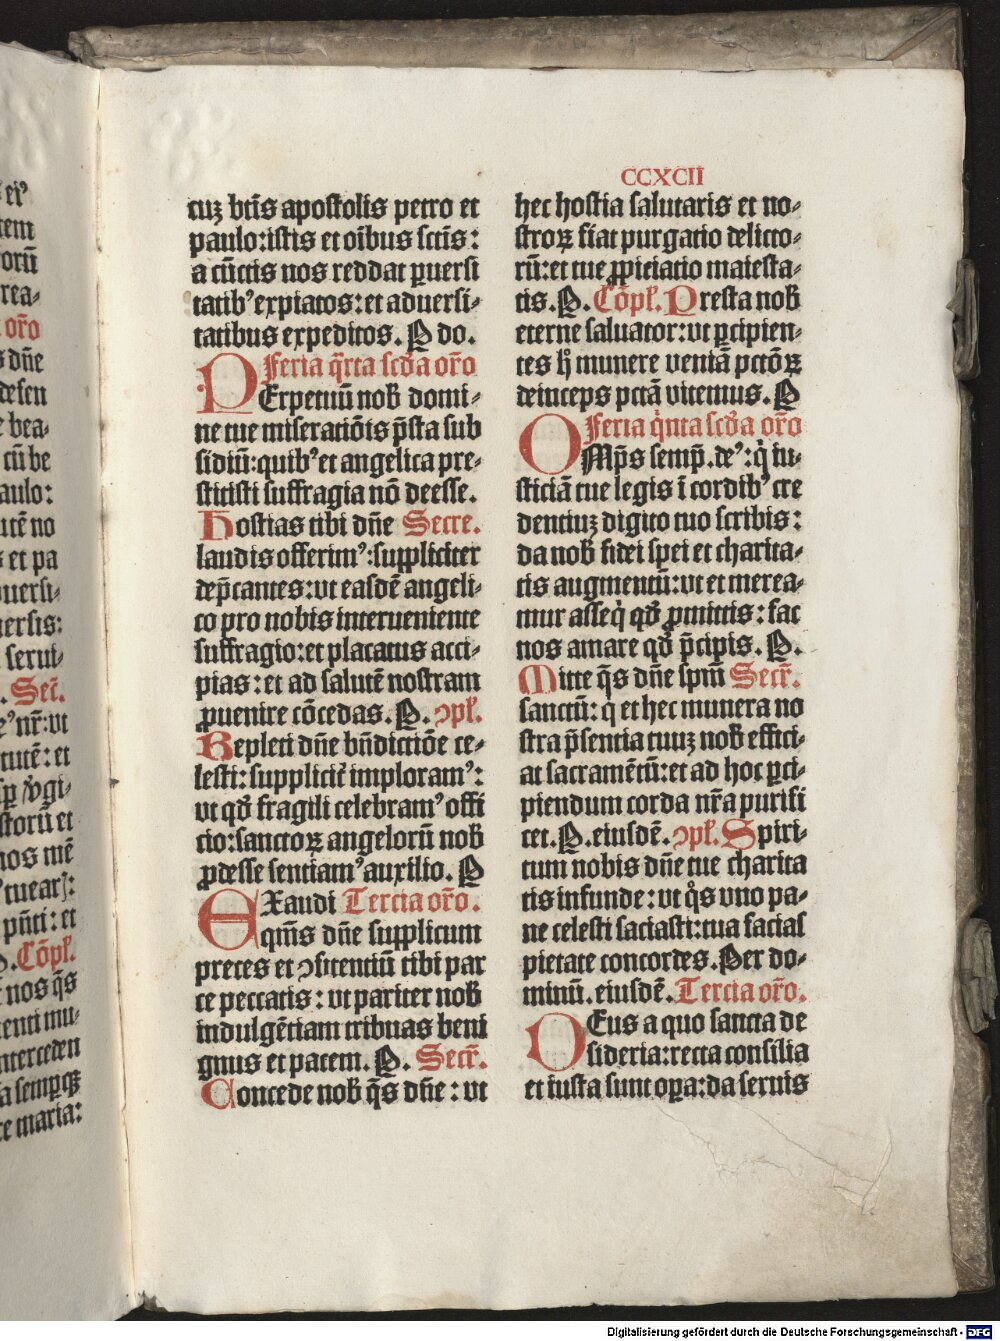 CCXCII
cuʒ btīs apostolis petro et
paulo: istis et oībus sctīs:
a cūctis nos reddat ꝑuersi
tatibꝰ expiatos: et aduersi⸗
tatibus expeditos. P do.
Feria q̄rta scd̄a or̄o
PErpetuū nob̄ domi⸗
ne tue miseratiōis p̄sta sub
sidiū: quibꝰ et angelica pre⸗
stitisti suffragia nō deesse.
Hostias tibi dn̄e Secre.
laudis offerimꝰ: suppliciter
dep̄cantes: vt easdē angeli⸗
co pro nobis interueniente
suffragio: et placatus acci⸗
pias: et ad salutē nostram
ꝓuenire cōcedas. P. ꝯpl̄.
Repleti dn̄e bn̄dictiōe ce⸗
lesti: suppliciť imploramꝰ:
vt qd̄ fragili celebramꝰ offi
cio: sanctoꝝ angelorū nob̄
ꝓdesse sentiamꝰ auxilio. P
EXaudi Tercia or̄o.
qm̄s dn̄e supplicum
preces et ꝯfitentiū tibi par
ce peccatis: vt pariter nob̄
indulgētiam tribuas beni
gnus et pacem. P. Secr̄.
Concede nob̄ q̄s dn̄e: vt
hec hostia salutaris et no⸗
stroꝝ fiat purgatio delicto⸗
rū: et tue ꝓpiciatio maiesta⸗
tis. P. Cōpl̄. Presta nob̄
eterne saluator: vt ꝑcipien⸗
tes hͦ munere veniā pctōꝝ
deinceps pctā vitemus. P
Feria q̇nta scd̄a or̄o
OMp̄s semp̄. deꝰ: q̇ iu⸗
sticiā tue legis ī cordibꝰ cre
dentiuʒ digito tuo scribis:
da nob̄ fidei spei et charita⸗
tis augmentū: vt et merea⸗
mur asseq̇ qd̄ ꝓmittis: fac
nos amare qd̄ p̄cipis. P.
Mitte q̄s dn̄e spm̄ Secr̄.
sanctū: q̇ et hec munera no
stra p̄sentia tuuʒ nob̄ effici⸗
at sacramētū: et ad hoc ꝑci⸗
piendum corda nr̄a purifi
cet. P. eiusdē. ꝯpl̄. Spiri⸗
tum nobis dn̄e tue charita
tis infunde: vt q̇s vno pa⸗
ne celesti saciasti: tua facias
pietate concordes. Per do⸗
minū. eiusdē. Tercia or̄o.
DEus a quo sancta de
sideria: recta consilia
et iusta sunt oꝑa: da seruis
Digitalisierung gefördert durch die Deutsche Forschungsgemeinschaft - DFG